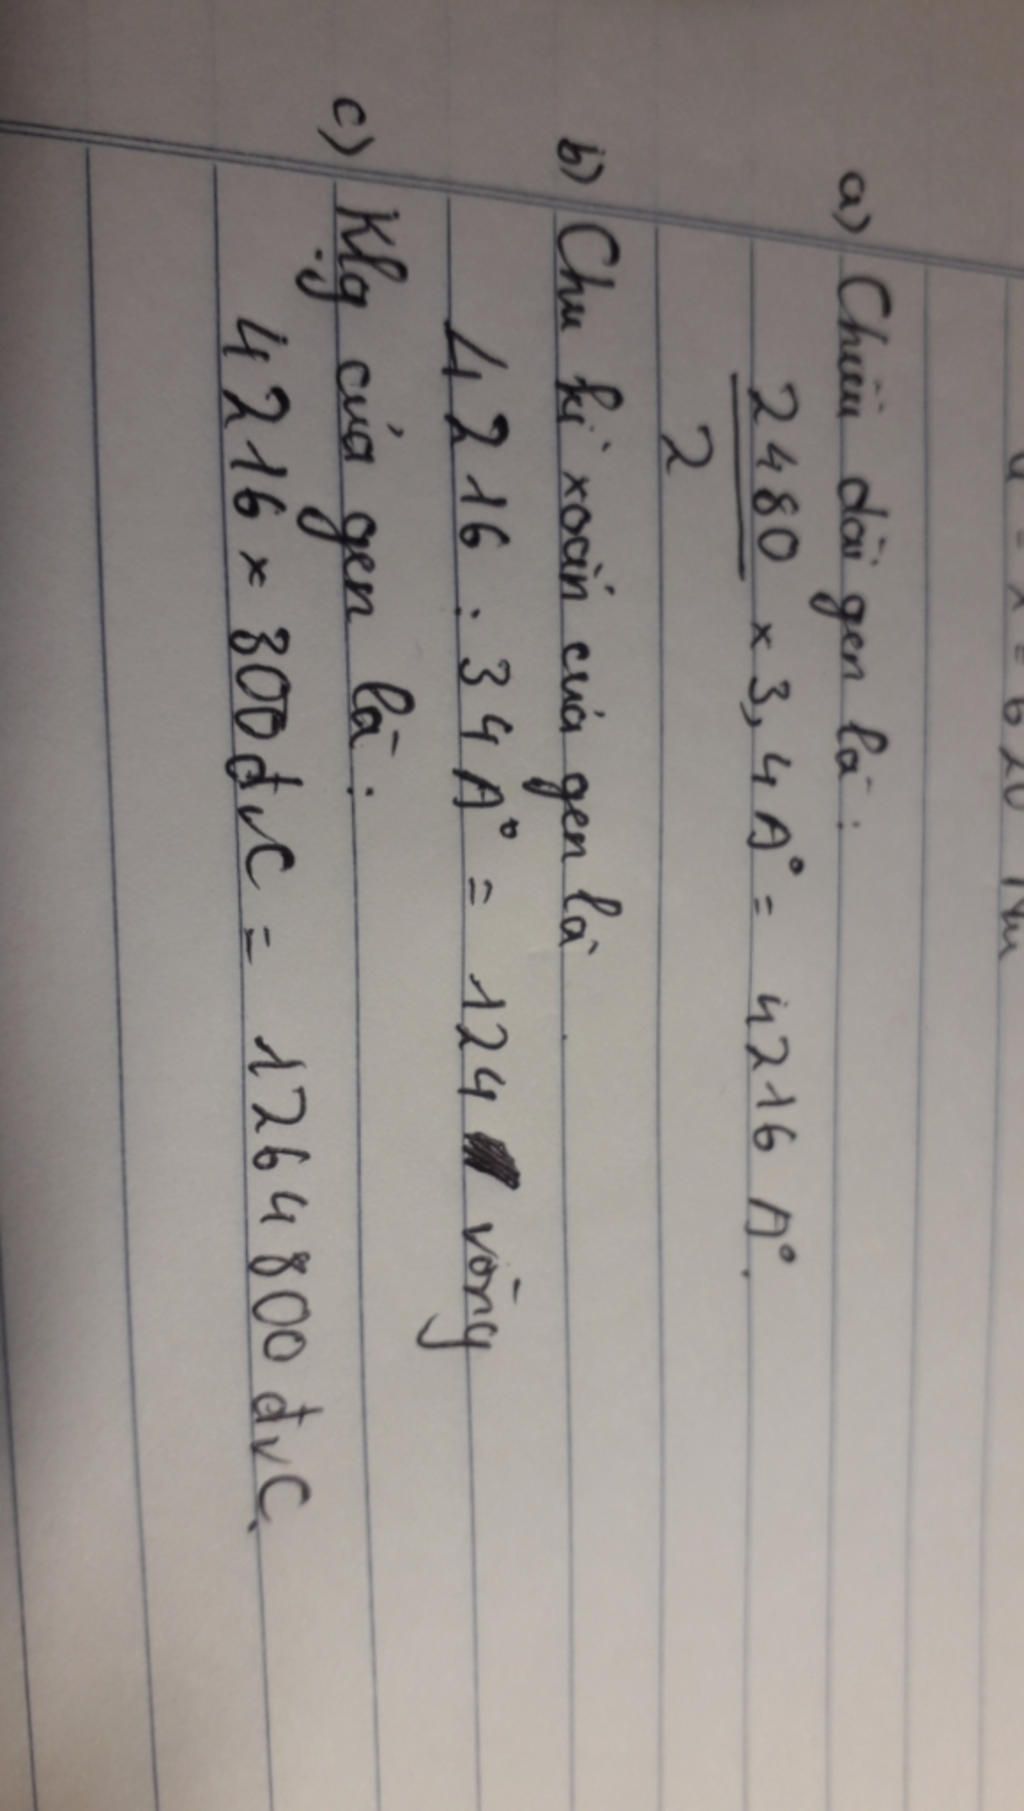 a) Chiều dài gen là:
2480 × 3,4 A° = 4216 A°.
2
b) Chu kì xoắn của gen là
4216 : 34 A° = 124 vòng
c) Klg của gen là:
4216 × 300 đvC = 1264800 đvC.